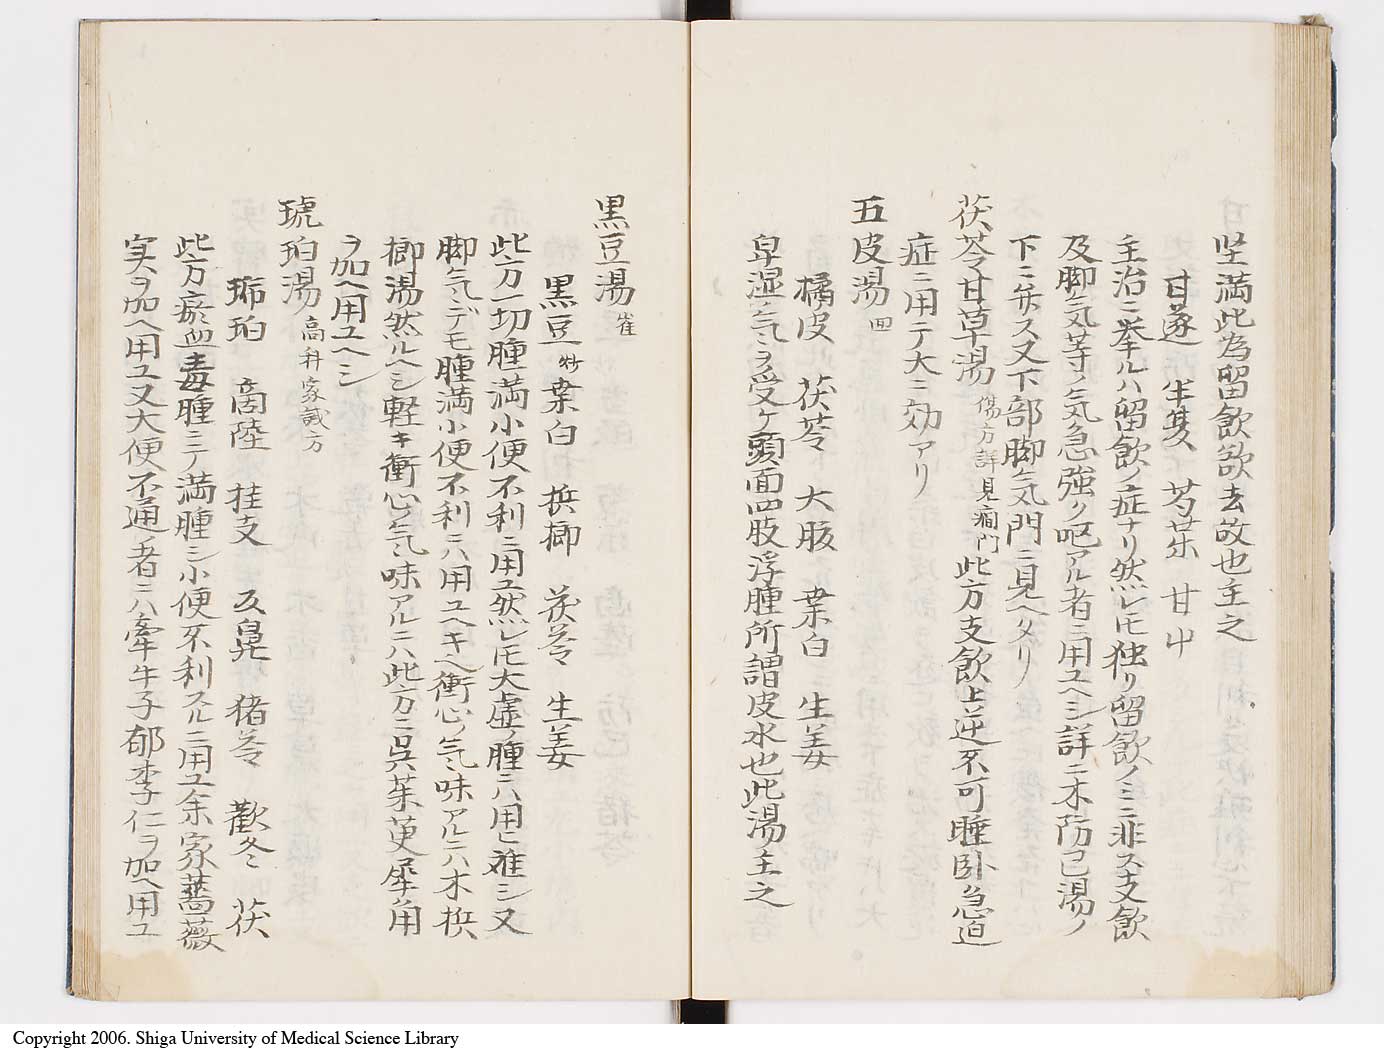 坚満此為留飲欲去故也主之
甘遂 半夏 芍薬 甘屮
主治ニ挙ルハ留飲ノ症ナリ然レ𪜈独リ留飲ノミニ非ス支飲
及脚気等ノ気急強ク呕アル者ニ用ユヘシ詳ニ木防己湯ノ
下ニ弁ス又下部脚気門ニ見ヘタリ
茯苓甘草湯 傷方詳見癇門 此方支飲上逆不可睡卧急迫
症ニ用テ大ニ効アリ
五皮湯 四
橘皮 茯苓 大腹 桒白 生姜
卑湿気ヲ受ケ頭面四肢浮腫所謂皮水也此湯主之
黒豆湯 崔
黒豆 桒白 梹榔 茯苓 生姜
此方一切腫満小便不利ニ用ユ然レ𪜈大虚ノ腫ニハ用ヒ難シ又
脚気ニデモ腫満小便不利ニハ用ユヘキヘ衝心ノ気味アルニハ木梹
榔湯然ルヘシ軽キ衝心ノ気味アルニハ此方ニ呉茱萸犀角
ヲ加ヘ用ユヘシ
琥珀湯 高舛家試方
琥珀 商陸 桂支 反鼻 猪苓 歓冬 茯
此方瘀血毒腫ニテ満腫シ小便不利スルニ用ユ余家薔薇
実ヲ加ヘ用ユ又大便不通者ニハ牽牛子郁李仁ヲ加ヘ用ユ
Copyright 2006. Shiga University of Medical Science Library